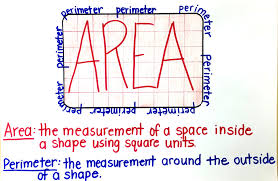 perimeter perimeter perimeter
perimeter
perimeter
AREA
perimeter
perimeter
perimeter perimeter perimeter
Area: the measurement of a space inside
a shape using square units.
Perimeter: the measurement around the outside
of a shape.